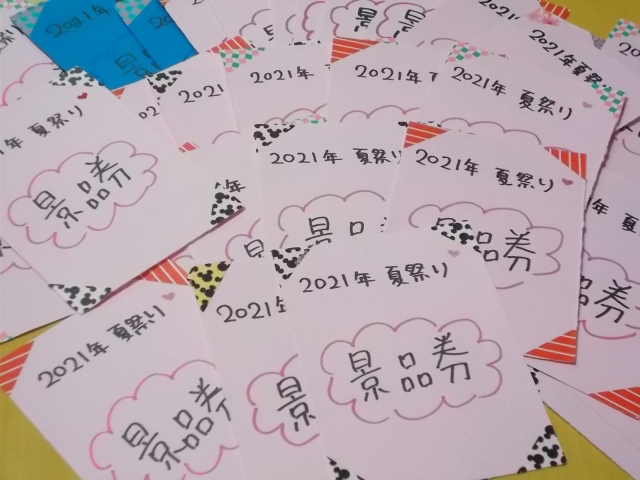 2021年
景
2021
2021年
2021年
2021年 夏祭り
2021年 夏祭り
年 夏祭り
景品券
2021年
2021年 夏祭り
景品券
年
2021年 夏祭り
景品券
2021
景
2021年 夏祭り
景品券